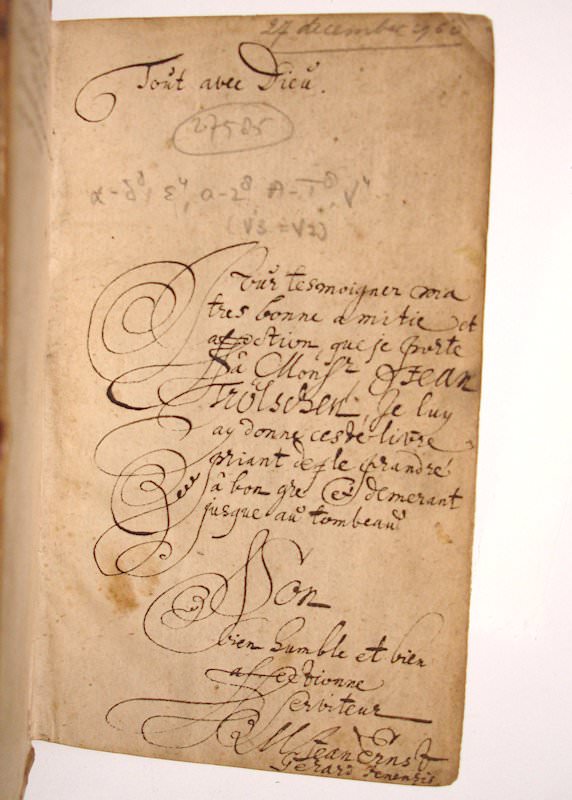 27 decembre 1960
Tout avec Dieu.
27585
α-δ⁸, ε⁴, a-z⁸ A-T⁸, V⁴
(V3 = V2)
Pour tesmoigner ma
tres bonne amitie et
affection que je porte
â Monsr Jean
Trölschen, Je luy
ay donne ceste livre
priant de le prandre
â bon gre et demerant
jusque au tombeau
Son
bien humble et bien
affectionne
serviteur
M. Jean Ernst
Gerard